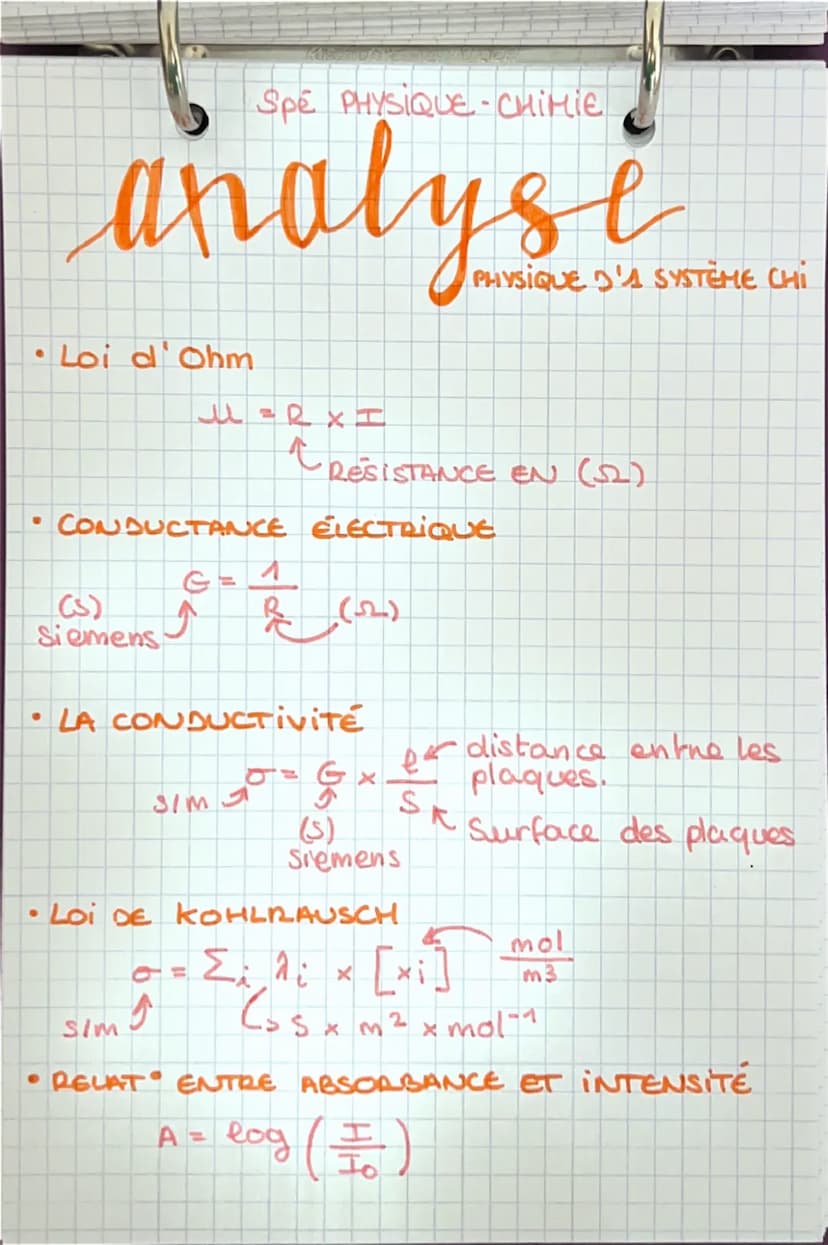 Spé PHYSIQUE-CHIMIE
analyse
PHYSIQUE D'1 SYSTÈME CHI
• Loi d'Ohm
U = R x I
RÉSISTANCE EN (Ω)
• CONDUCTANCE ÉLECTRIQUE
G = 1/R
(S) (Ω)
Siemens
• LA CONDUCTIVITÉ
σ = G x l/S
distance entre les
plaques.
S/m
Surface des plaques
(S)
Siemens
• LOI DE KOHLRAUSCH
σ = Σi λi x [xi] mol/m3
S/m
S x m² x mol⁻¹
• RELAT° ENTRE ABSORBANCE ET INTENSITÉ
A = log (I/I₀)